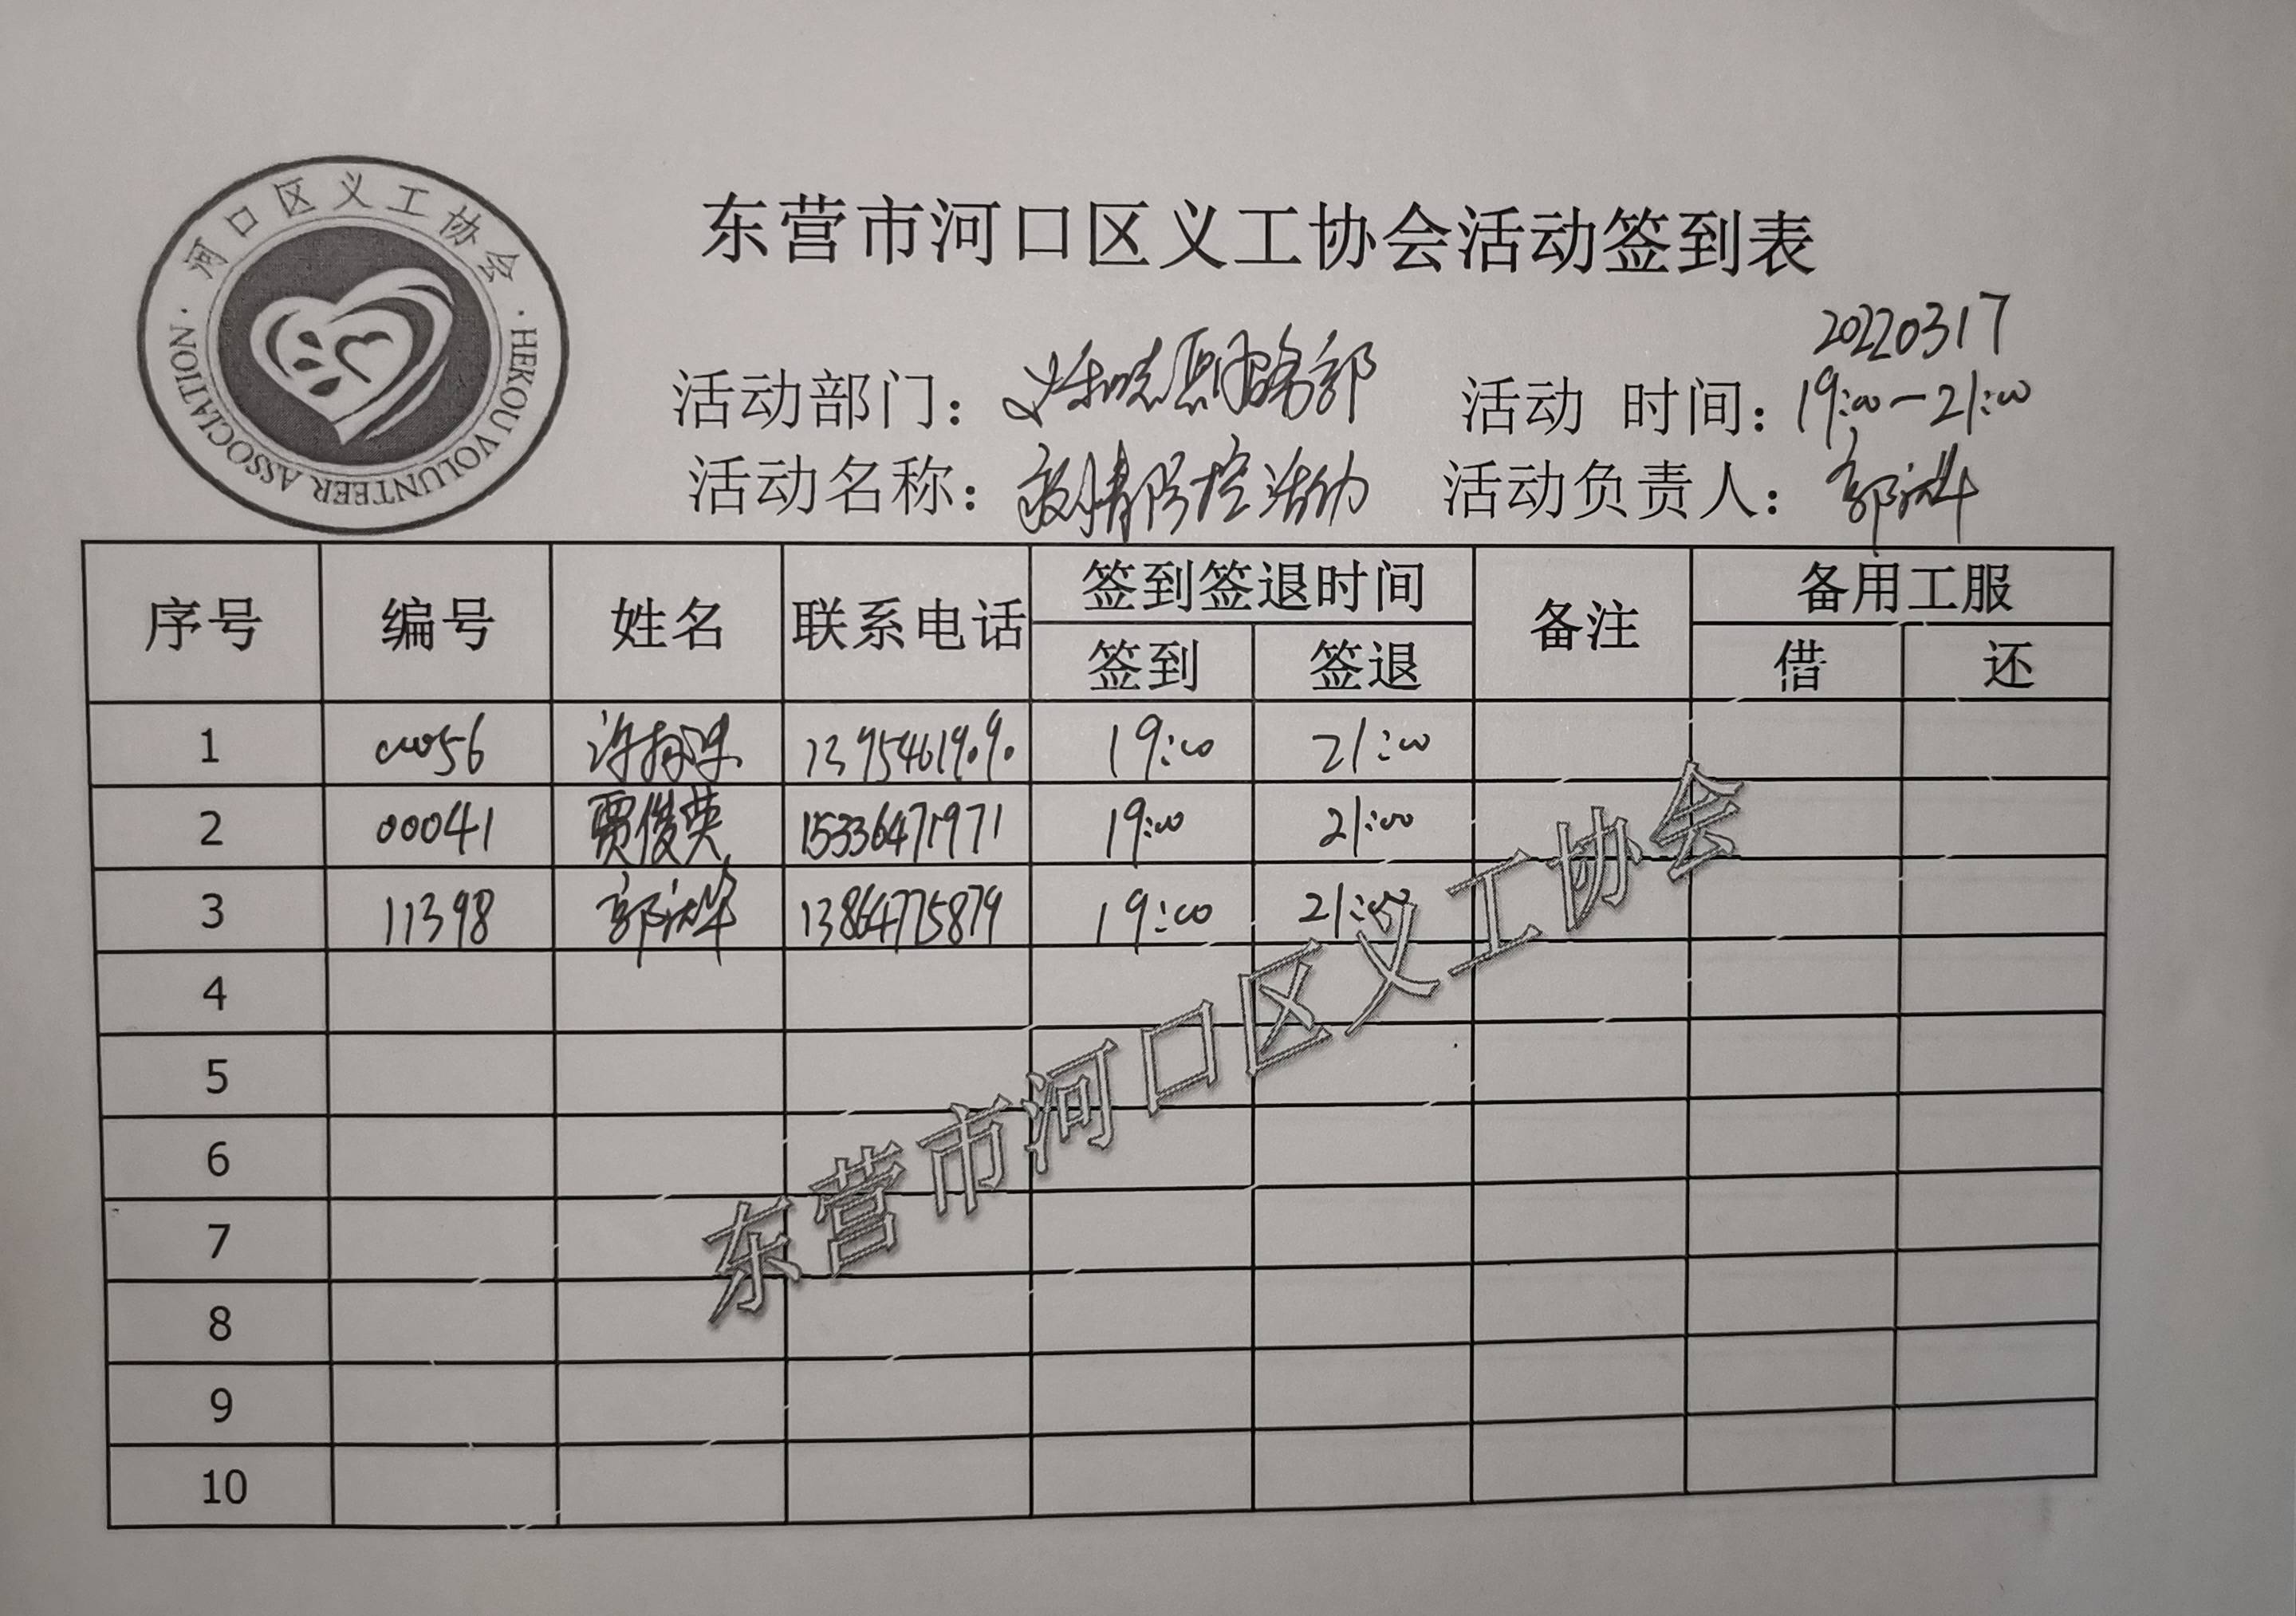 河口区义工协会
HEKOU VOLUNTEER ASSOCIATION
东营市河口区义工协会活动签到表
20220317
活动部门： 义和志愿服务部 活动 时间：19:00-21:00
活动名称： 疫情防控活动 活动负责人： 郭
序号 编号 姓名 联系电话 签到签退时间 备注 备用工服
签到 签退 借 还
1 00056 许 13954619090 19:00 21:00
2 00041 贾俊英 15336471971 19:00 21:00
3 11398 郭 13864775879 19:00 21:00
4
5
6
7
8
9
10
东营市河口区义工协会